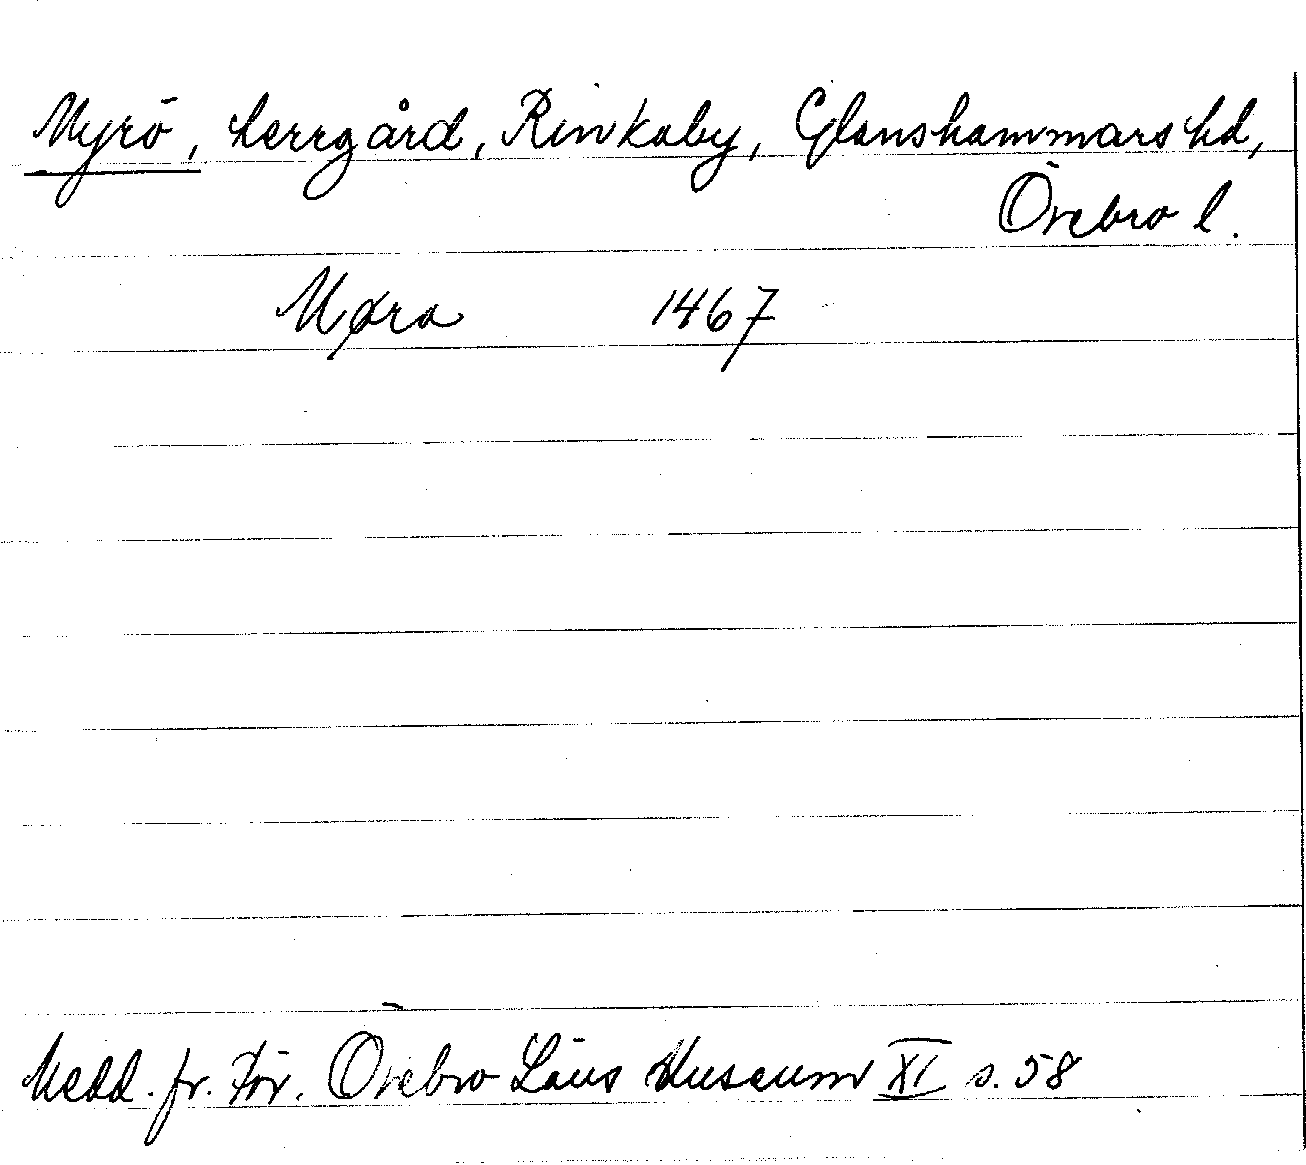 Myrö, herrgård, Rinkaby, Glanshammars hd,
Örebro l.
Møra 1467
Medd. fr. För. Örebro Läns Museum XI s. 58